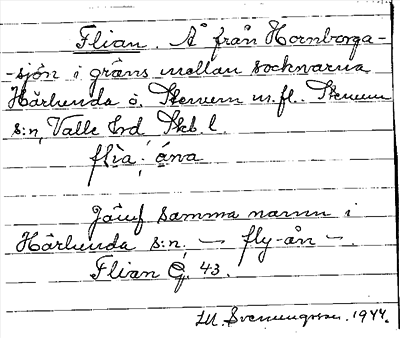 Flian. Å från Hornborga-
-sjön i gräns mellan socknarna
Härlunda o. Stenum m.fl. Stenum
s:n, Valle hrd Skb. l.
flìa; åna
Jämf samma namn i
Härlunda s:n. — fly-ån —.
Flian G. 43.
M. Svenungsson. 1944.